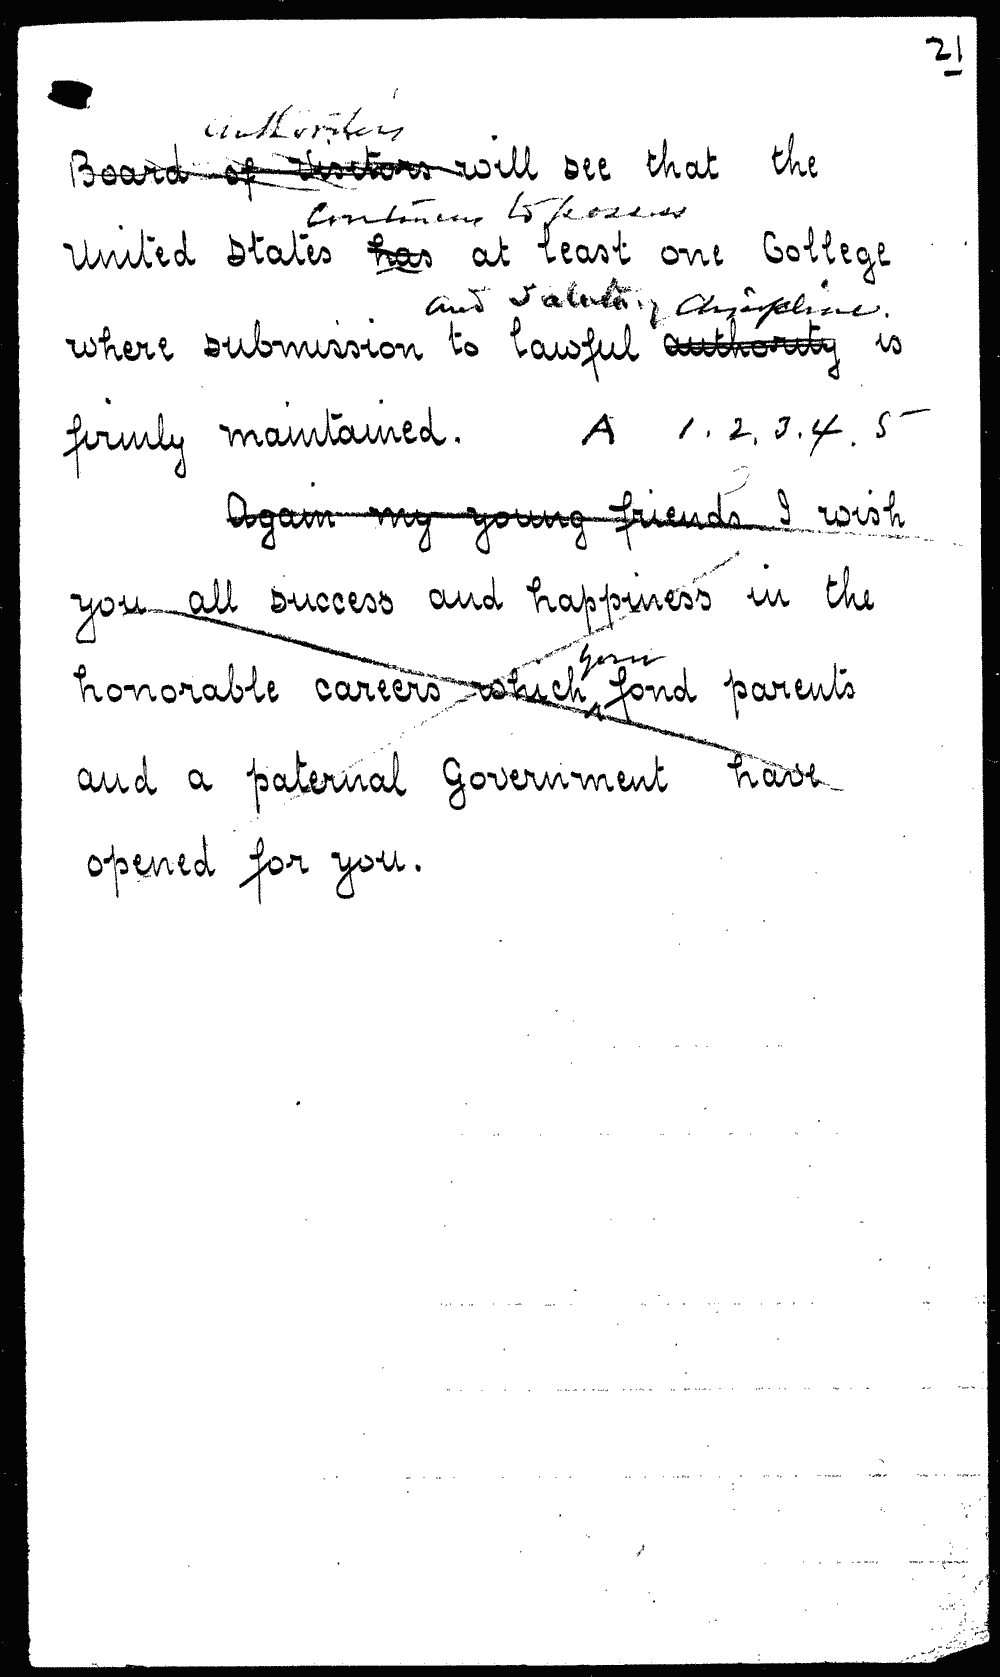 21
authorities
Board of Visitors will see that the
continues to possess
United States has at least one College
and salutary discipline.
where submission to lawful authority is
firmly maintained. A 1. 2. 3. 4. 5
Again my young friends I wish
you all success and happiness in the
your
honorable careers which ^ fond parents
and a paternal Government have
opened for you.